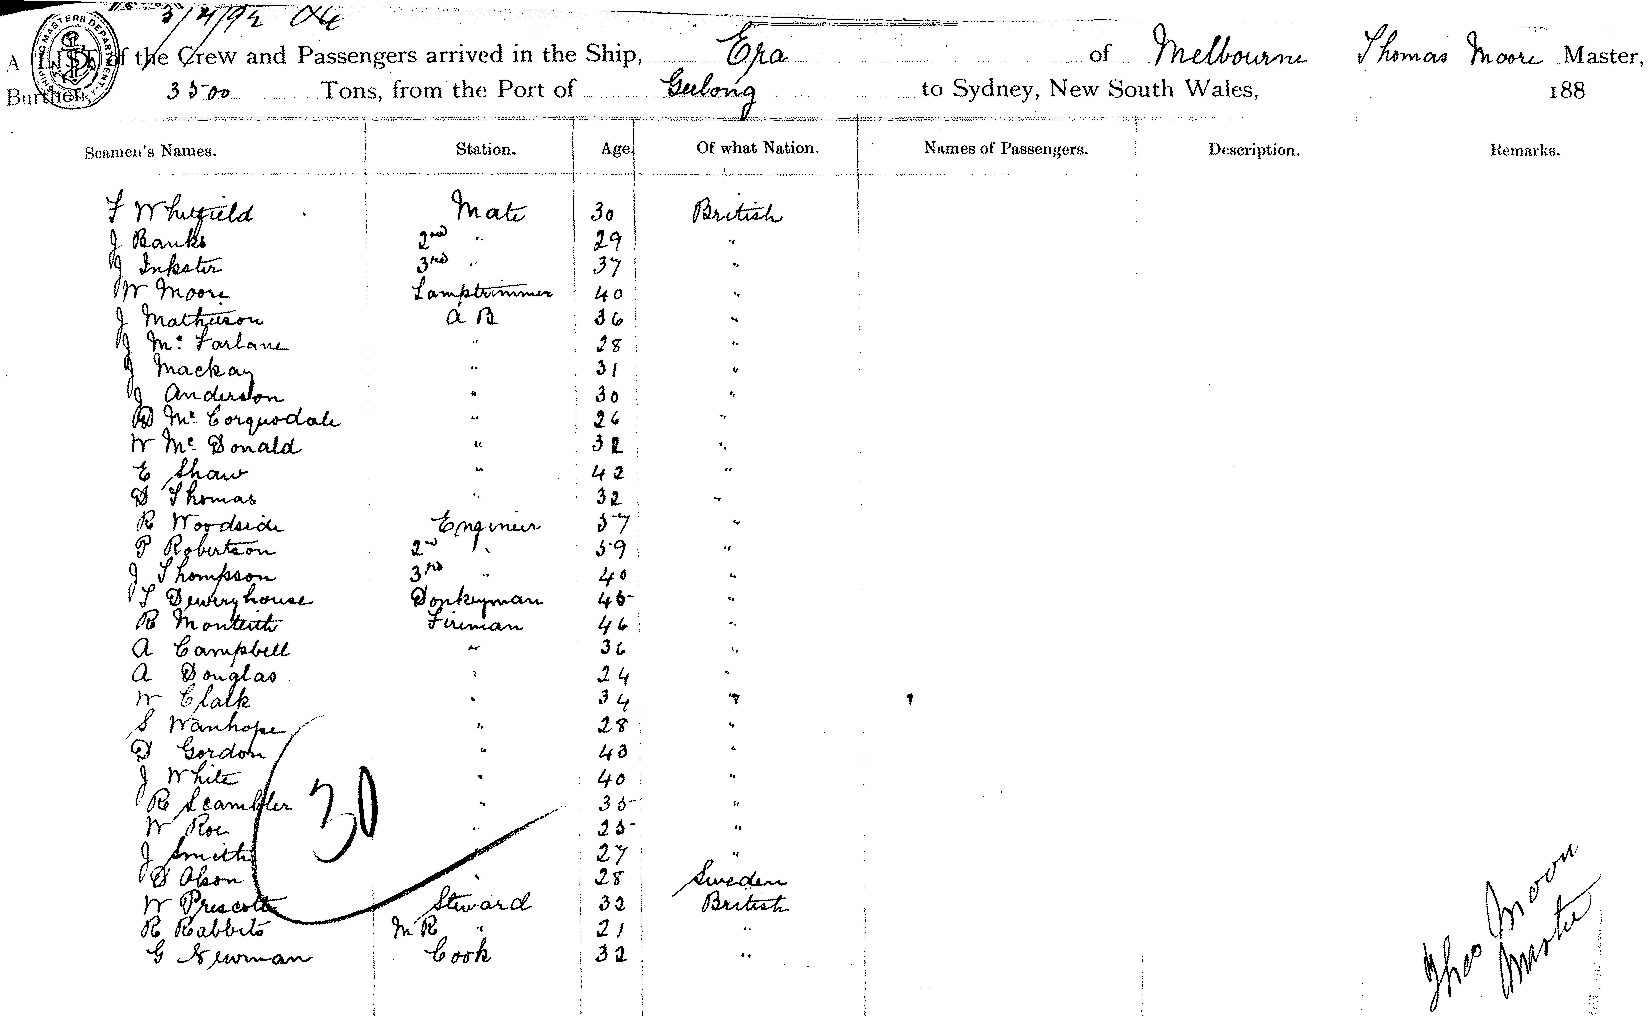 3/4/92
A LIST of the Crew and Passengers arrived in the Ship, Era of Melbourne Thomas Moore Master,
Burthen, 3500 Tons, from the Port of Geelong to Sydney, New South Wales, 188
Seamen's Names. Station. Age. Of what Nation. Names of Passengers. Description. Remarks.
F Whitfield Mate 30 British
J Banks 2nd " 29 "
J Inkster 3rd " 37 "
W Moore Lamptrimmer 40 "
J Matheson A B 36 "
J Mc Farlane " 28 "
J Mackay " 31 "
J Anderson " 30 "
D Mc Corquodale " 26 "
W Mc Donald " 32 "
E Shaw " 42 "
D Thomas " 32 "
R Woodside Engineer 37 "
P Robertson 2nd " 39 "
J Thompson 3rd " 40 "
T Deweryhouse Donkeyman 45 "
R Monteith Fireman 46 "
A Campbell " 36 "
A Douglas " 24 "
W Clark " 34 "
S Wanhope " 28 "
D Gordon " 43 "
J White " 40 "
R Scambler " 35 "
W Roe " 25 "
J Smith " 27 "
D Olson " 28 Sweden
W Prescott Steward 32 British
R Rabbits M R " 21 "
G Newman Cook 32 "
30
Thos Moore
Master